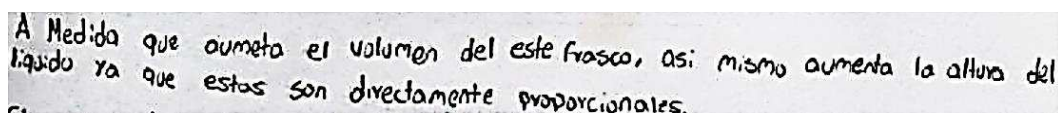 A Medida que aumeta el volumen del este frasco, asi mismo aumenta la altura del
liquido ya que estas son directamente proporcionales.